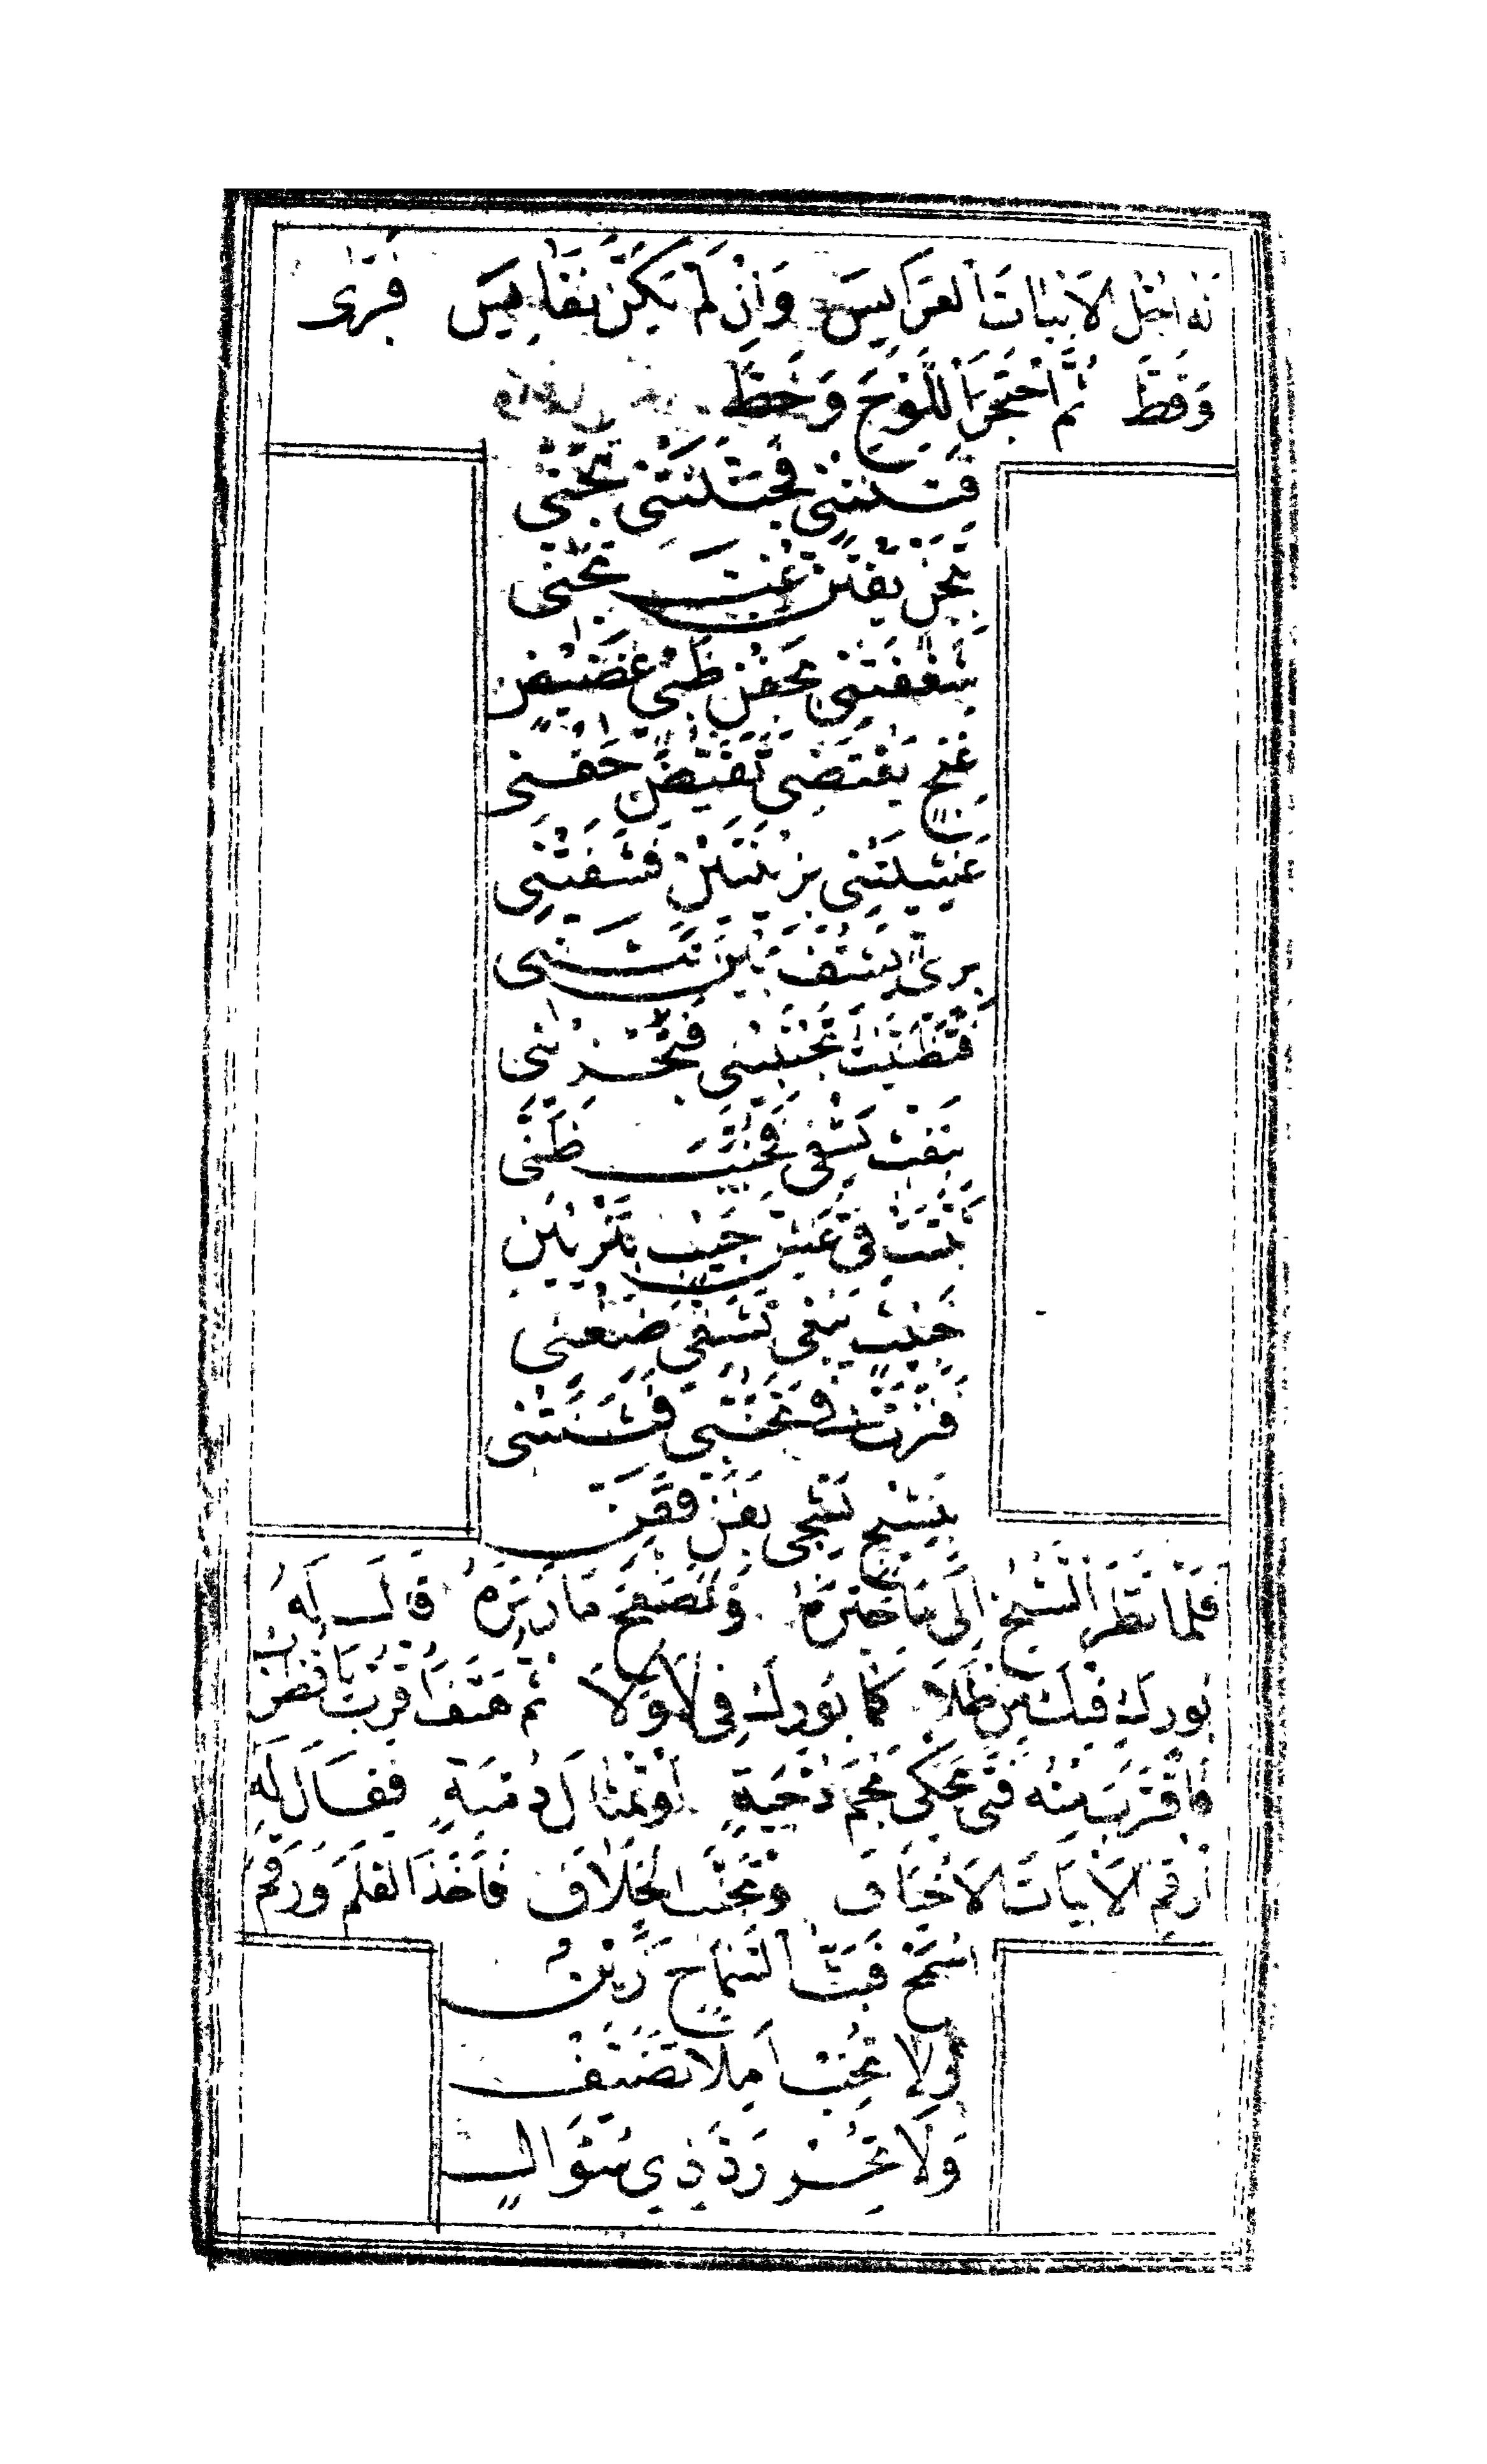 لَهُ اجْلُ الاَبْيَاتَ العَرَايِسَ وَاِنْ لَمْ يَكُنَّ نَفَايِسَ فَبَرَى
وَقَطَّ ثُمَّ احْتَجَرَ اللَّوْحَ وَخَطَّ
فَتَنَتْنِي فَجَنَّنَتْنِي تَجَنِّي
بِتَجَنٍّ يَفْتَنُّ غِبَّ تَجَنِّي
شَغَفَتْنِي بِجَفْنِ ظَبْيٍ غَضِيضٍ
غَنِجٍ يَقْتَضِي تَغَيُّضَ جَفْنِي
غَشِيَتْنِي بِزِينَتَيْنِ فَشَفَّتْنِي
بِزِيٍّ يَشِفُّ بَيْنَ تَثَنِّي
فَتَظَنَّيْتُ تَجْتَبِينِي فَتَجْزِينِي
بِنَفْثٍ يَشْفِي فَخُيِّبَ ظَنِّي
ثَبَّتَتْ فِيَّ غِشَّ جَيْبٍ بِتَزْيِينِ
خَبِيثٍ يَبْغِي تَشَفِّيَ ضِغْنِي
فَنَزَتْ فِي تَجَنُّبِي فَثَنَتْنِي
بِنَشِيجٍ يُشْجِي بِفَنٍّ فَفَنِّ
فَلَمَّا نَظَرَ الشَّيْخُ اِلَى مَا حَبَّرَهُ وَتَصَفَّحَ مَا زَبَرَهُ قَالَ لَهُ
بُورِكَ فِيكَ مِنْ طَلَا كَمَا بُورِكَ فِي لَا وَلَا ثُمَّ هَتَفَ اقْرُبْ يَا قُطْرُبُ
فَاقْتَرَبَ مِنْهُ فَتًى يَحْكِي نَجْمَ دُجْيَةٍ اَوْ تِمْثَالَ دُمْيَةٍ فَقَالَ لَهُ
اُرْقُمِ الاَبْيَاتَ الاَخْيَافَ وَتَجَنَّبِ الخِلَافَ فَاَخَذَ القَلَمَ وَرَقَمَ
اسْمَحْ فَبَثُّ السَّمَاحِ زَيْنٌ
وَلَا تُخِبْ آمِلًا تَضَيَّفْ
وَلَا تُجِزْ رَدَّ ذِي سُؤَالٍ